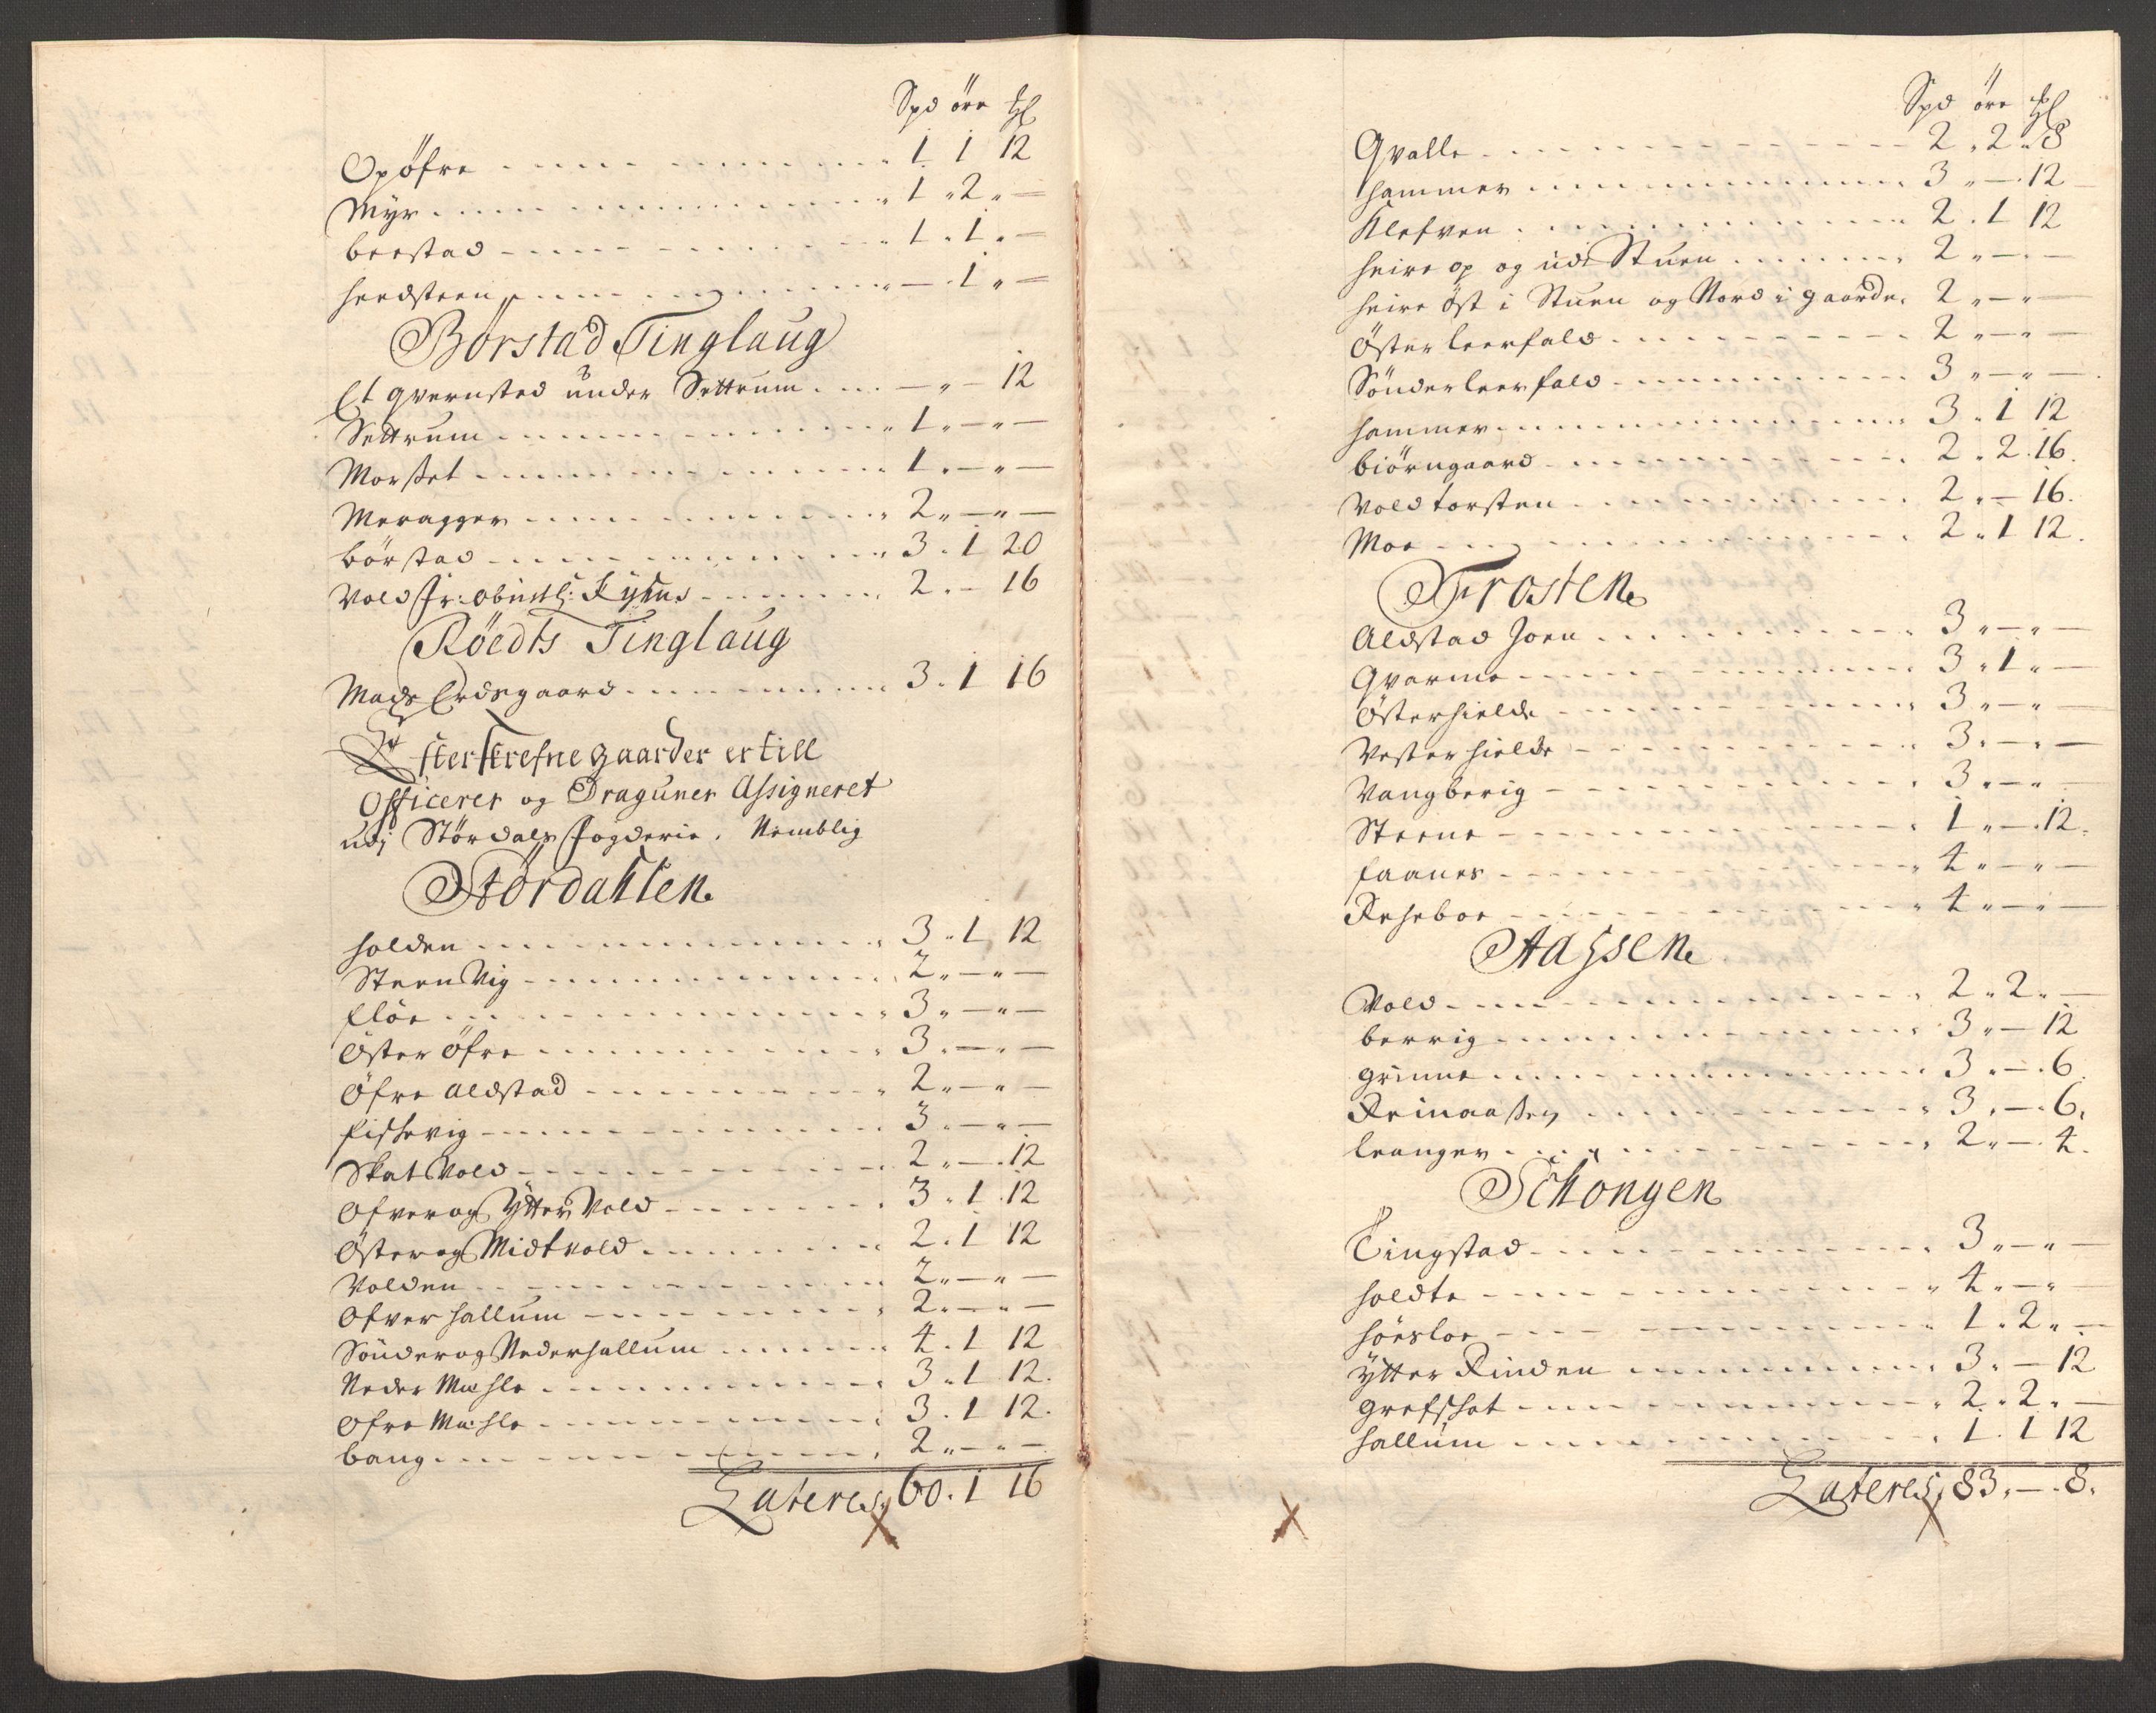 Spd öre
Opöfre 1 1 12
Myr 1 " 2 " —
beestad 1 " 1 " —
heedsteen — " 1 " —
Börstad Tinglaug
Et qvernsted under Settrum — " — 12
Settrum 1 " — " —
Morset 1 " — " —
Meragger 2 " — " —
börstad 3 " 1 20
Vold Fr: obinstl: 2 " — 16
Röedts Tinglaug
Mads Erdsgaard 3 " 1 16
Efterskrefne gaarder er till
Officerer og Draguner Assigneret
udj Stördals Fogderie, Nemblig
Stördahlen
holden 3 " 1 12
Steen Vig 2 " — " —
Elöe 3 " — " —
Öster Öfre 3 " — " —
Öfre Aldstad 2 " — " —
fiskevig 3 " — " —
Skat Vold 2 " — " 12
Ofver og Ytter Vold 3 " 1 " 12
Öster og Midtvold 2 " 1 12
Volden 2 " — " —
Ofver hallum 2 " — " —
Sönder og Neder hallum 4 " 1 12
Neder Mæhle 3 " 1 12
Ofre Mæhle 3 " 1 12
bang 2 " — " —
Lateres 60 " 1 16
Spd öre
Qvalle 2 " 2 " 8
hammer 3 " — " 12
Klefven 2 " 1 12
heire op og ude Stuen 2 " — " —
heire öst i Stuen og Nord i gaarde 2 " — " —
Öster leerfald 2 " — " —
Sönder leerfald 3 " — " —
hammer 3 " 1 12
biörngaard 2 " 2 " 16
Vold torsten 2 " — 16
Moe 2 " 1 12
Frosten
Aldstad Joen 3 " — " —
Qvarme 3 " 1 " —
Österhielde 3 " — " —
Vester hielde 3 " — " —
Vangberig 3 " — " —
Steene 1 " — " 12
faanes 4 " — " —
Reheboe 4 " — " —
Aassen
Vold 2 " 2 " —
berrig 3 " — 12
grinne 3 " — " 6
Reinaassen 3 " — " 6
leanger 2 " — " 4
Schongen
Tingstad 3 " — " —
holdte 4 " — " —
hörsloe 1 " 2 " —
Ytter Rinden 3 " — 12
grefshet 2 " 2 " —
hallum 1 " 1 12
Lateres 83 " — " 8